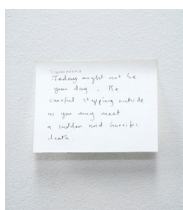 Today might not be
your day. Be
careful stepping outside
as you may meet
a sudden and horrific
death.